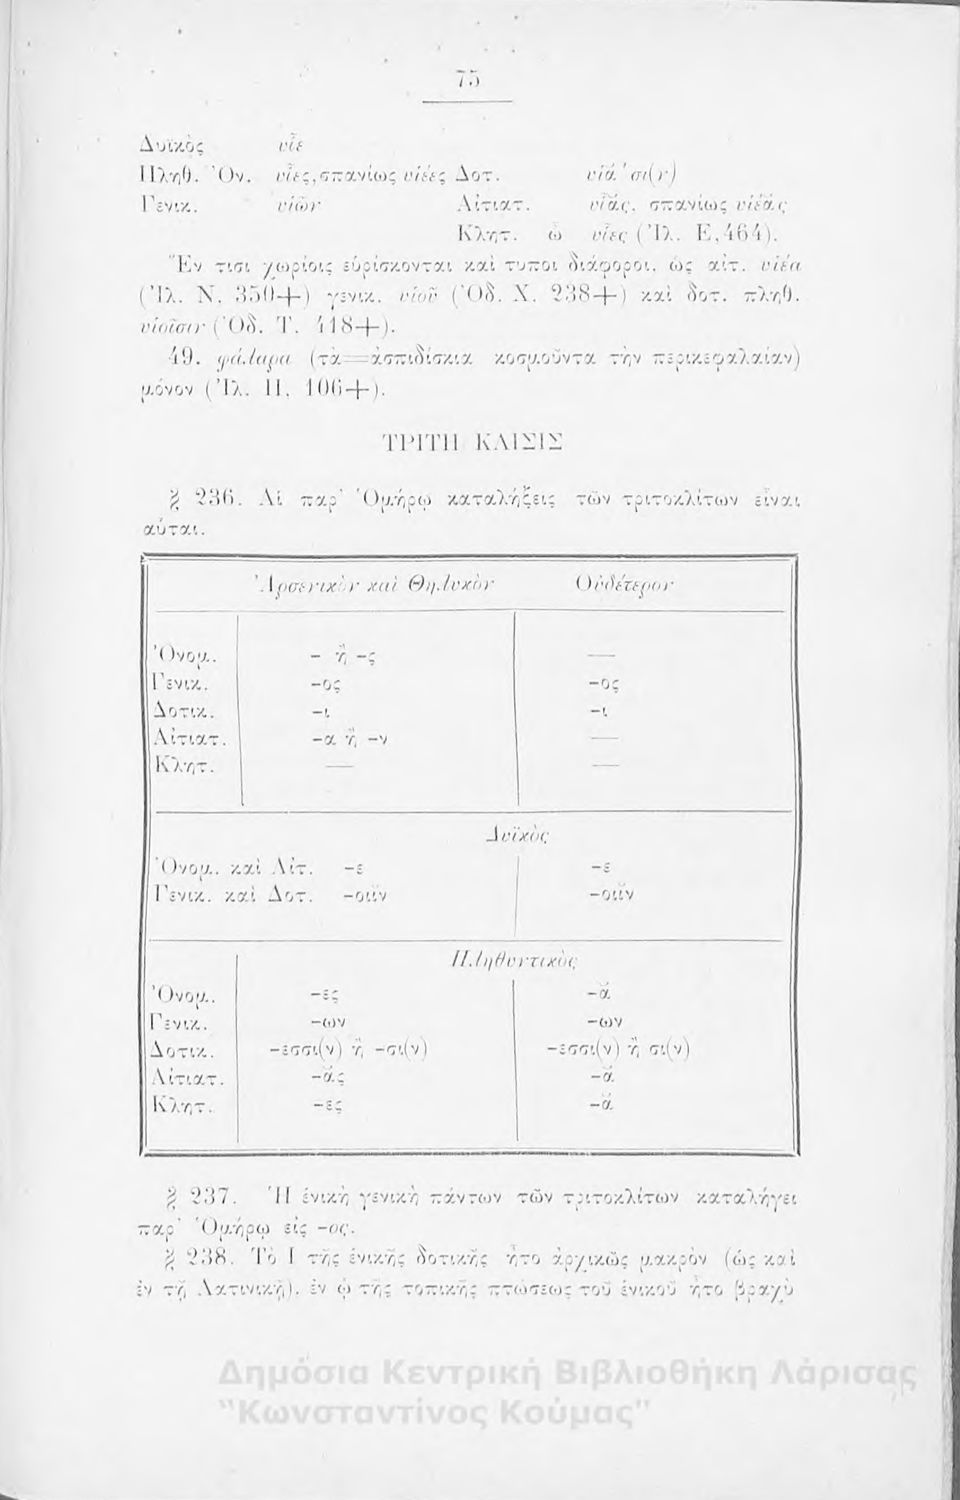 75
Δυϊκὸς υἷε
Πληθ. Ὀν. υἷες, σπανίως υἱέες Δοτ. υἱά'σι(ν)
Γενικ. υἱῶν Αἰτιατ. υἷάς. σπανίως υἱέάς
Κλητ. ὦ υἷες (Ἰλ. Ε, 464).
Ἔν τισι χωρίοις εὑρίσκονται καὶ τύποι διάφοροι. ὡς αἰτ. υἱέα
(Ἰλ. Ν. 350+) γενικ. υἱοῦ (Ὀδ. Χ. 238+) καὶ δοτ. πληθ.
υἱοῖσιν (Ὀδ. Τ. 418+).
49. φάλαρα (τὰ=ἀσπιδίσκια κοσμοῦντα τὴν περικεφαλαίαν)
μόνον (Ἰλ. Π. 106+).
ΤΡΙΤΗ ΚΛΙΣΙΣ
§ 236. Αἱ παρ' Ὁμήρῳ καταλήξεις τῶν τριτοκλίτων εἶναι
αὗται.
Ἀρσενικὸν καὶ Θηλυκὸν Οὐδέτερον
Ὀνομ. - ἢ -ς —
Γενικ. -ος -ος
Δοτικ. -ι -ι
Αἰτιατ. -α ἢ -ν —
Κλητ. — —
Δυϊκὸς
Ὀνομ. καὶ Αἰτ. -ε -ε
Γενικ. καὶ Δοτ. -οιϊν -οιϊν
Πληθυντικὸς
Ὀνομ. -ες -ᾰ
Γενικ. -ων -ων
Δοτικ. -εσσι(ν) ἢ -σι(ν) -εσσι(ν) ἢ σι(ν)
Αἰτιατ. -ᾰς -ᾰ
Κλητ. -ες -ᾰ
§ 237. Ἡ ἑνικὴ γενικὴ πάντων τῶν τριτοκλίτων καταλήγει
παρ' Ὁμήρῳ εἰς -ος.
§ 238. Τὸ Ι τῆς ἑνικῆς δοτικῆς ἦτο ἀρχικῶς μακρὸν (ὡς καὶ
ἐν τῇ Λατινικῇ). ἐν ᾧ τῆς τοπικῆς πτώσεως τοῦ ἑνικοῦ ἦτο βραχὺ
Δημόσια Κεντρική Βιβλιοθήκη Λάρισας
"Κωνσταντίνος Κούμας"